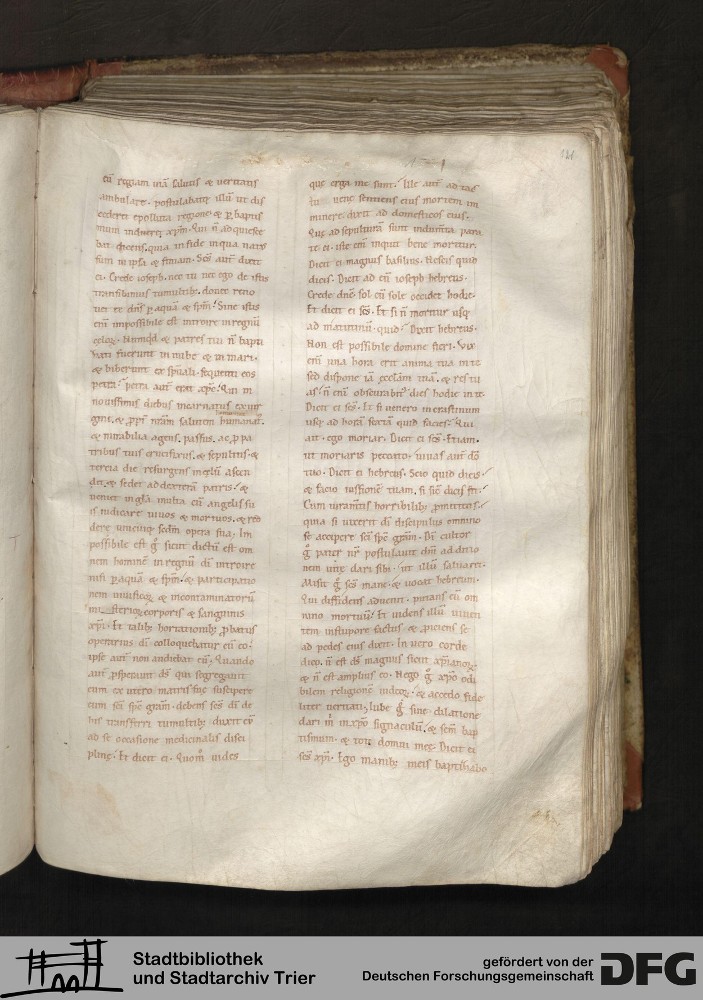 121
cū regiam uiā salutis & ueritatis
ambulare. postulabatq; illū ut dis
cederet epolluta regione. & p baptis
mum indueret xpm. Qui n̄ adquiesce
bat. dicens. quia infide inqua natus
sum in ipsa & finiam. Scs̄ aut̄ dixit
ei. Crede ioseph. nec tu nec ego de istis
transibimus tumultib; donec reno
uet te dn̄s p aquā & spm̄. Sine istis
eni impossibile est introire inregnū
celoꝝ. Nunqd̄ & patres tui n̄ bapti
zati fuerunt in nube & in mari.
& biberunt ex sp̄uali. sequenti eos
petra. petra aut̄ erat xp̄c. Qui in
nouissimis diebus incarnatus ex uir
gine. & ppt̄ nr̄am salutem humanat.
& mirabilia agens. passus. ac p pa
tribus tuis crucifixus. & sepultus. &
tercia die resurgens in celū ascen
dit. & sedet ad dexterā patris. &
ueniet ingl̄a multa cū angelis su
is iudicare uiuos & mortuos. & red
dere unicuiq; sedm̄ opera sua. Im
possibile est g̊ sicut dictū est om
nem hominē inregnū dī introire
nisi p aquā & spm̄. & participatio
nem uiuificoꝝ & incontaminatorū
misterioꝝ corporis & sanguinis
xpi. Et talib; hortationib; pbatus
operarius dī colloquebatur eū eo.
ipse aut̄ non audiebat eū. Quando
aut̄ psperunt ds̄ qui segregauit
eum ex utero matris suę suscipere
eum sc̄i spc̄ gratiā. debens scs̄ dī de
his transferri tumultib; duxit eū
ad se occasione medicinalis disci
plinę. Et dicit ei. Quom̊ uides
que erga me sunt. Ille aut̄ ad tac
tu uene sentiens eius mortem in
minere dixit ad domesticos eius.
Quę ad sepulturā sunt indumta para
te ei. iste eni inquit bene moritur.
Dicit ei magnus basilius. Nescis quid
dicis. Dicit ad eū ioseph hebreus.
Crede dn̄e sol cū sole occidet hodie.
Et dicit ei scs̄. Et si n̄ moriur usq;
ad matutinū. quid? Dixit hebreus.
Non est possibile domine fieri. Vix
eni una hora erit anima tua in te
sed dispone iā eccl̄iam tuā. & res tu
as. n̄ eni obseruabit dies hodie in te.
Dicit ei scs̄. Et si uenero in crastinum
usq; ad horā sextā quid facies? Qui
ait. ego moriar. Dicit ei scs̄. Etiam.
ut moriaris peccato. uiuas aut̄ dō
tuo. Dicit ei hebreus. Scio quid dicis.
& facio iussionē tuam. si sic dicis fit.
Cum iuramtis horribilib; pmittis.
quina si uixerit dī discipulus omnino
se accipere sc̄i spc̄ gratm̄. Dī cultor
g̊ pater nr̄ postulauit dm̄ ad ditio
nem uitę dari sibi. ut illū saluaret.
Misit g̊ scs̄ mane. & uocat hebreum.
Qui diffidens aduenit. putans eū om
nino mortuū. Et uidens illū uiuen
tem instupore factus & pciens se
ad pedes eius dixit. In uero corde
dico. n̄ est ds̄ magnus sicut xp̄ianoꝝ.
& n̄ est amplius eo. Nego g̊ xp̄o odi
bilem religionē iudeoꝝ. & accedo fide
liter ueritati. Iube g̊ sine dilatione
dari m̄ in xp̄o signaculū. & sc̄m bap
tismum. & toti domui meę. Dicit ei
scs̄ xpi. Ego manib; meis baptizabo
Stadtbibliothek
und Stadtarchiv Trier
gefördert von der
Deutschen Forschungsgemeinschaft
DFG